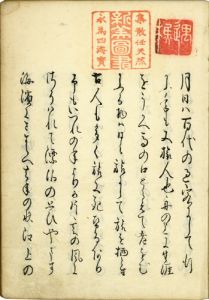 月日ハ百代の過客にして行
かふ年も又旅人也舟の上に生涯
をうかへ馬の口とらえて老をむか
ふる物ハ日々旅にして旅を栖とす
古人も多く旅に死せるあり
予もいつれの年よりか片雲の風
にさそはれて漂泊の思ひやます
海濱にさすらへ去年の秋江上の
集散任天然
永為四海寶